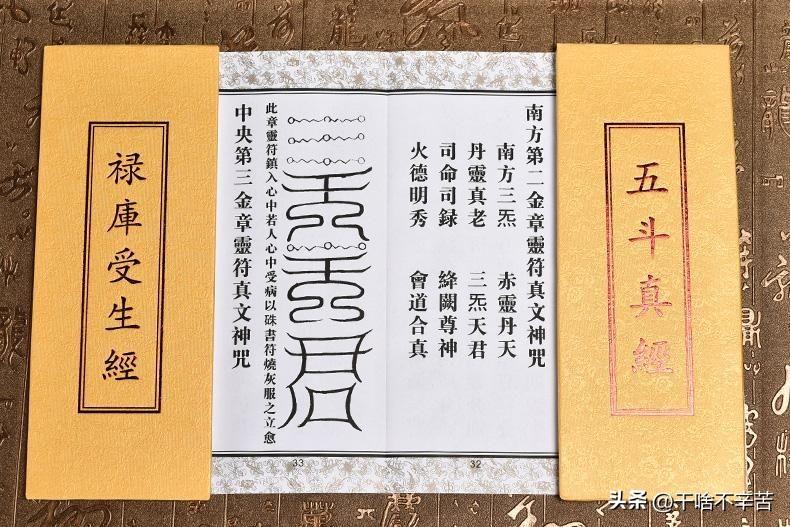 五斗真經
南方第二金章靈符真文神咒
南方三炁　赤靈丹天
丹靈真老　三炁天君
司命司録　絳闕尊神
火德明秀　會道合真
32
此章靈符鎮入心中若人心中受病以硃書符燒灰服之立愈
中央第三金章靈符真文神咒
33
禄庫受生經
头条 @干啥不辛苦